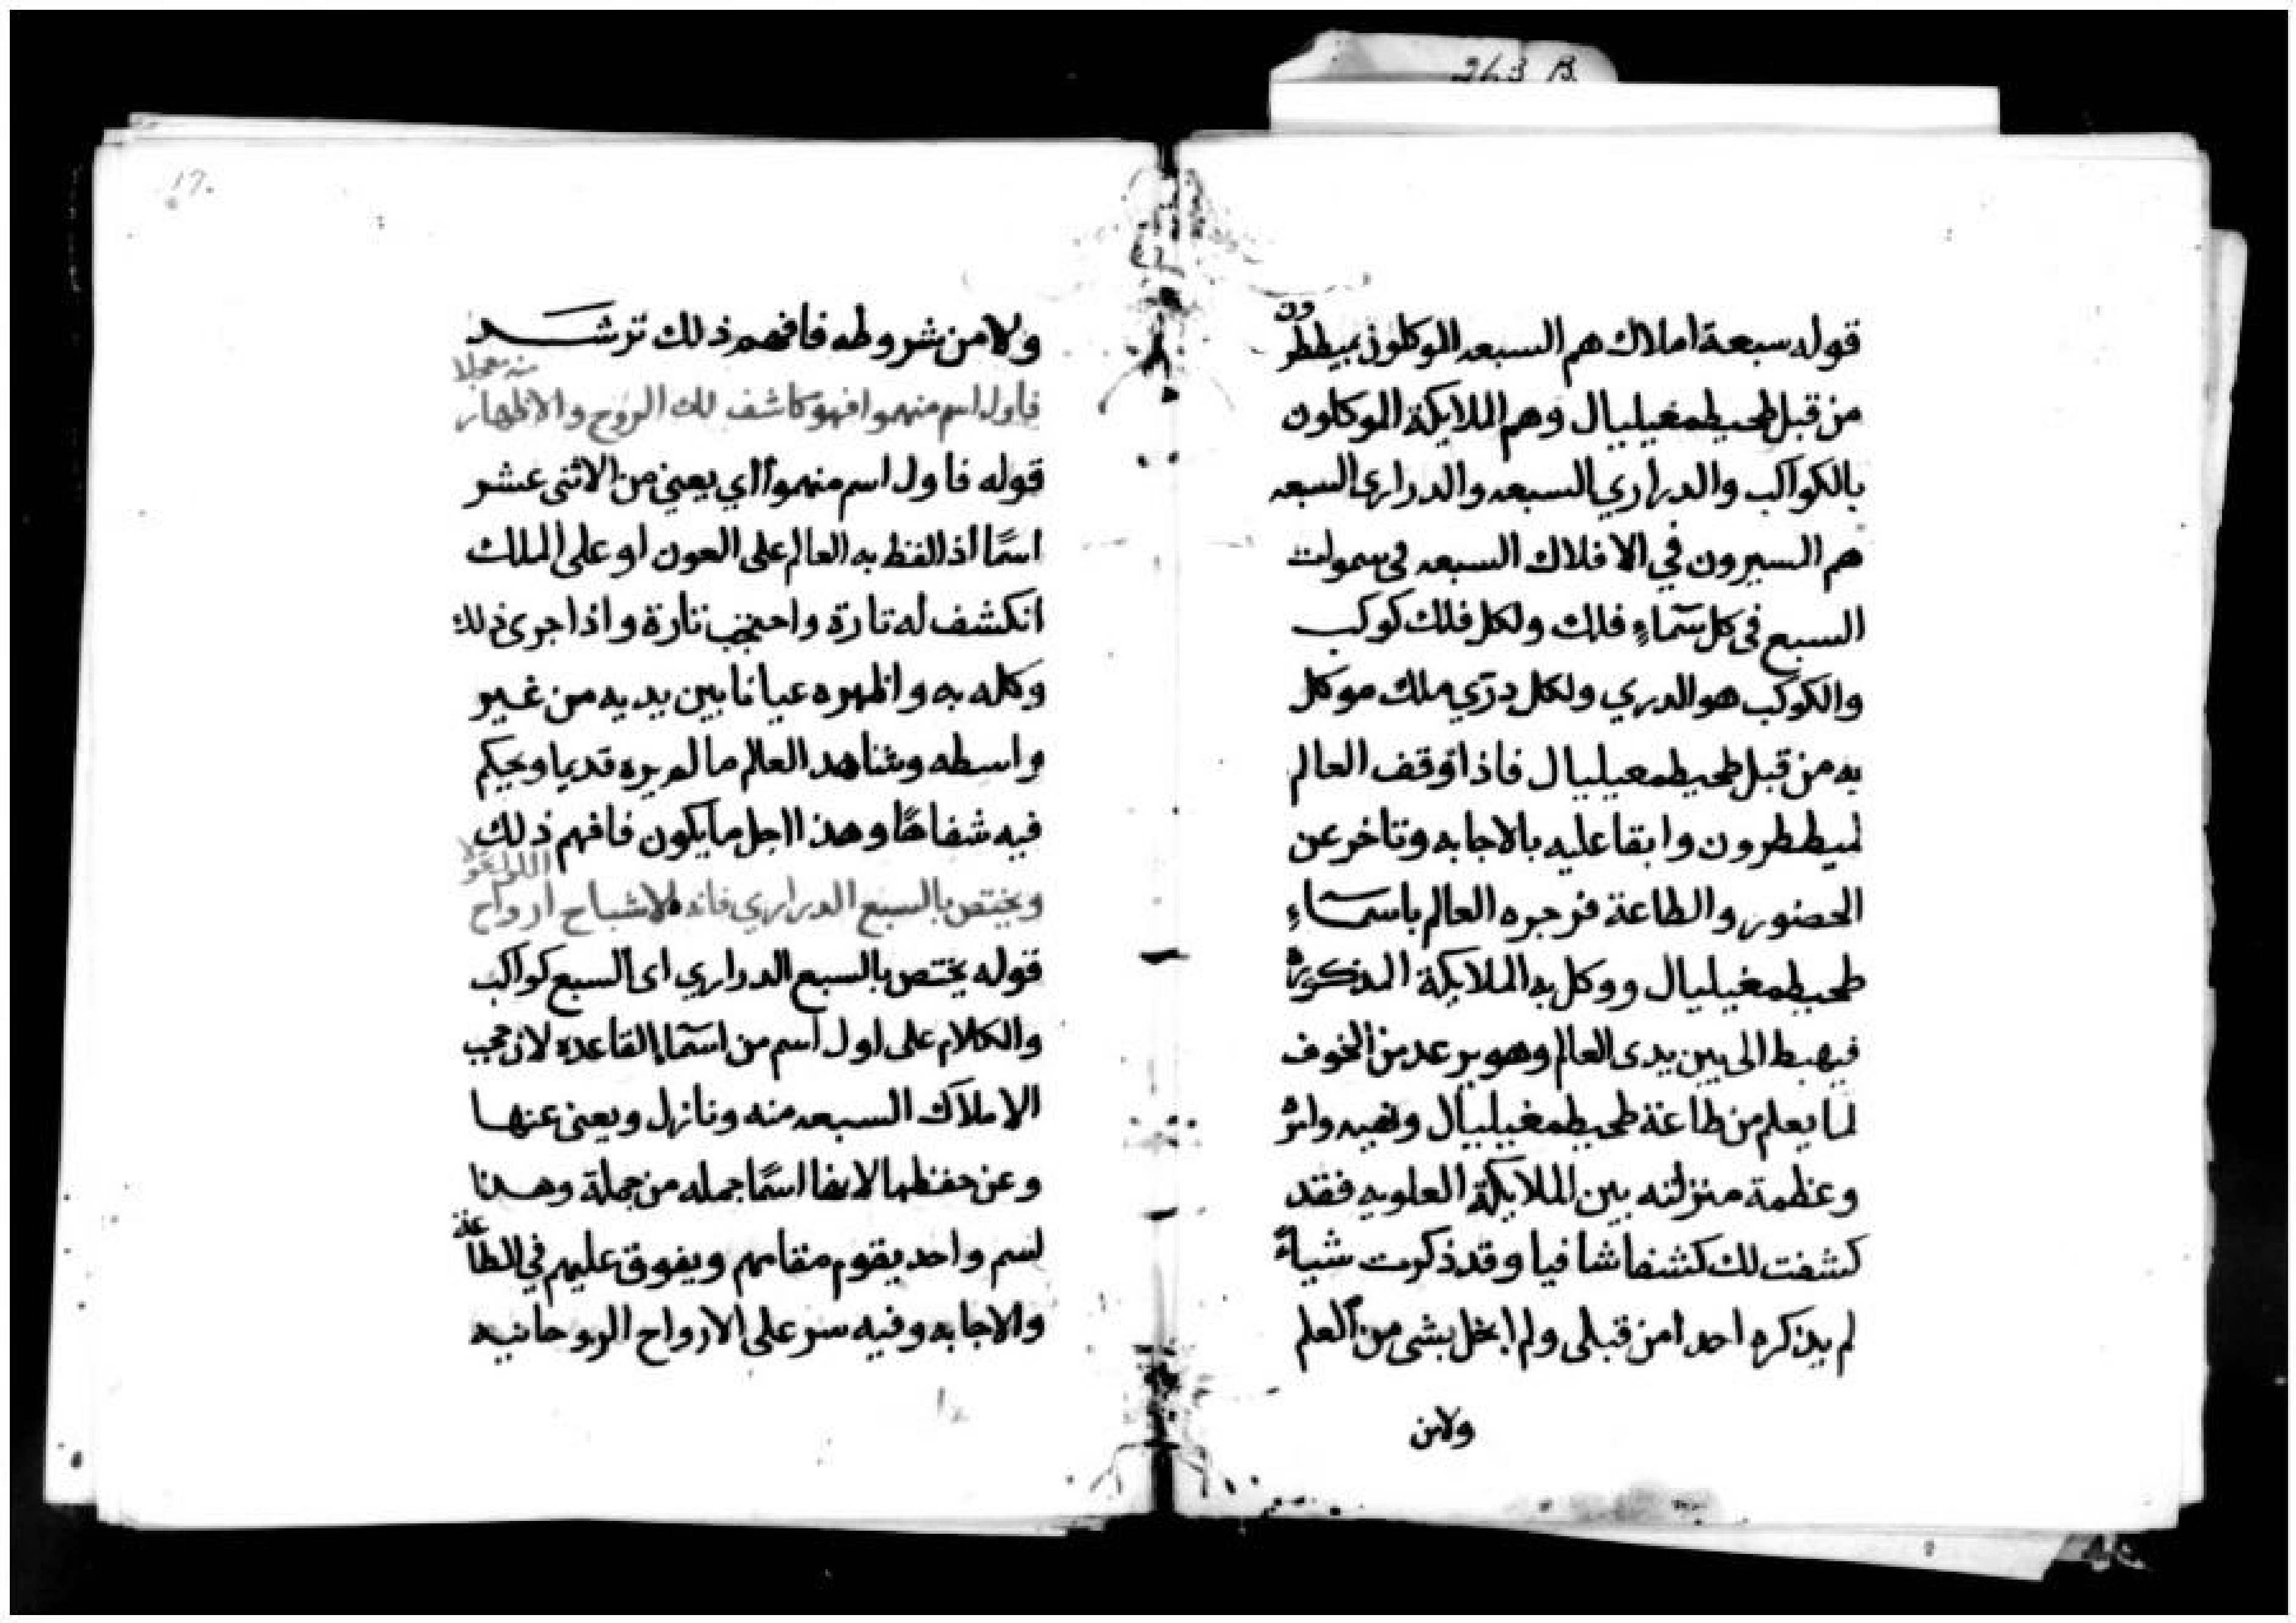 263 B.
قوله سبعة املاك هم السبعه الموكلون بميططرون
من قبل طحيطمغيليال وهم الملايكة الموكلون
بالكواكب والدراري السبعه والدراري السبعه
هم السيرون في الافلاك السبعه في سموات
السبع في كل سمآءٍ فلك ولكل فلك كوكب
والكوكب هو الدري ولكل درّي ملك موكل
به من قبل طحيطمعيليال فاذا توقف العالم
لميططرون وابقا عليه بالاجابه وتاخر عن
الحضور والطاعة فزجره العالم باسمآءِ
طحيطمغيليال ووكل به الملايكة المذكورة
فيهبط الى بين يدى العالم وهو يرعد من الخوف
لما يعلم من طاعة طحيطمغيليال
وعظمة منزلته بين الملايكة العلويه فقد
كشفت لك كشفا شافيا وقد ذكرت شياءً
لم يذكره احدا من قبلى ولم ابخل بشى من العلم
ولامن
17.
ولا من شروطه فافهم ذلك ترشد
فاول اسم منهموا فهو كاشف لك الروح والاظهار منه معجلا
قوله فاول اسم منهموا اي يعني من الاثنى عشر
اسمًا اذا لفظ به العالم على العون او على الملك
انكشف له تارة واحتجب تارة واذا جرى ذلك
وكله به واظهره عيانا بين يديه من غير
واسطه وشاهد العالم ما لم يره قديما ويحيكم
فيه شفاهًا وهذا اجل ما يكون فافهم ذلك
ويختص بالسبع الدراري فانه للاشباح ارواح
قوله يختص بالسبع الدراري اى السبع كواكب
والكلام على اول اسم من اسمآ القاعده لان حجب
الاملاك السبعه منه ونازل ويعنى عنها
وعن حفظها اسمًا جمله من جملة وهذا
اسم واحد يقوم مقامهم ويفوق عليهم في الطاعة
والاجابه وفيه سر على الارواح الروحانيه